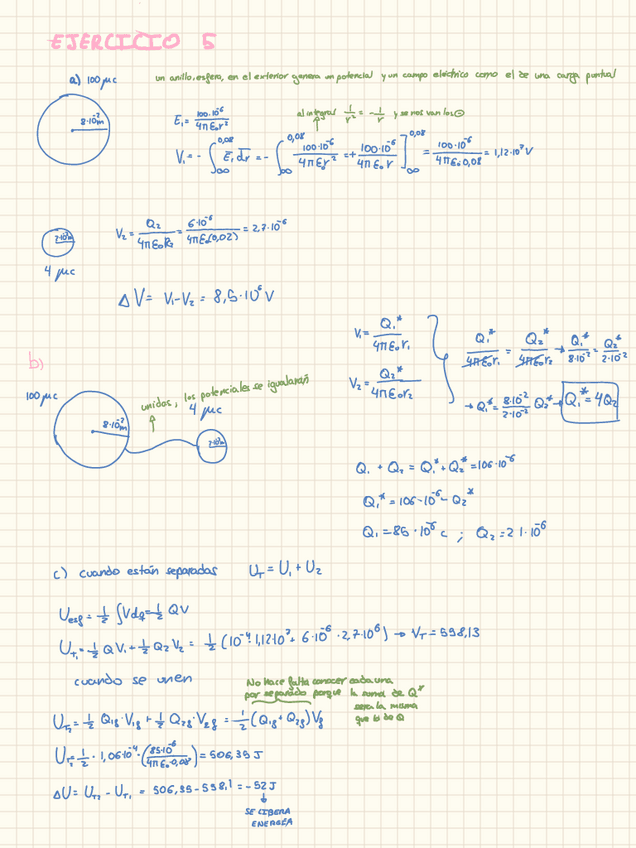 EJERCICIO 5
a) 100 μc
un anillo, esfera, en el exterior genera un potencial y un campo eléctrico como el de una carga puntual
8·10⁻²m
E₁ = 100·10⁻⁶ / 4πε₀r²
al integral 1/r² = -1/r y se nos van los ⊖
V₁ = - ∫_∞^0,08 E₁ dr = - ∫_∞^0,08 100·10⁻⁶ / 4πε₀r² = + 100·10⁻⁶ / 4πε₀r ]_∞^0,08 = 100·10⁻⁶ / 4πε₀0,08 = 1,12·10⁷ V
V₂ = Q₂ / 4πε₀R₂ = 6·10⁻⁶ / 4πε₀(0,02) = 2,7·10⁻⁶
4 μc
ΔV = V₁-V₂ = 8,5·10⁶ V
b)
100 μc
unidos, los potenciales se igualarán
4 μc
8·10⁻²m
V₁ = Q₁* / 4πε₀r₁
V₂ = Q₂* / 4πε₀r₂
Q₁* / 4πε₀r₁ = Q₂* / 4πε₀r₂ → Q₁* / 8·10⁻² = Q₂* / 2·10⁻²
→ Q₁* = 8·10⁻² / 2·10⁻² Q₂* → Q₁* = 4Q₂
Q₁ + Q₂ = Q₁* + Q₂* = 106·10⁻⁶
Q₁* = 106·10⁻⁶ - Q₂*
Q₁ = 85·10⁻⁶ c ; Q₂ = 21·10⁻⁶
c) cuando están separadas U_T = U₁ + U₂
U_esf = 1/2 ∫Vdq = 1/2 QV
U_T₁ = 1/2 QV₁ + 1/2 Q₂V₂ = 1/2 (10⁻⁴·1,12·10⁷ + 6·10⁻⁶·2,7·10⁶) → V_T = 558,13
cuando se unen
No hace falta conocer cada una
por separado porque la suma de Q*
será la misma
que la de Q
U_T₂ = 1/2 Q₁f·V₁f + 1/2 Q₂f·V₂f = 1/2 (Q₁f + Q₂f) Vf
U_T₂ = 1/2 · 1,06·10⁻⁴ · (85·10⁻⁶ / 4πε₀·0,08) = 506,35 J
ΔU = U_T₂ - U_T₁ = 506,35 - 558,1 = -52 J
SE LIBERA
ENERGÍA